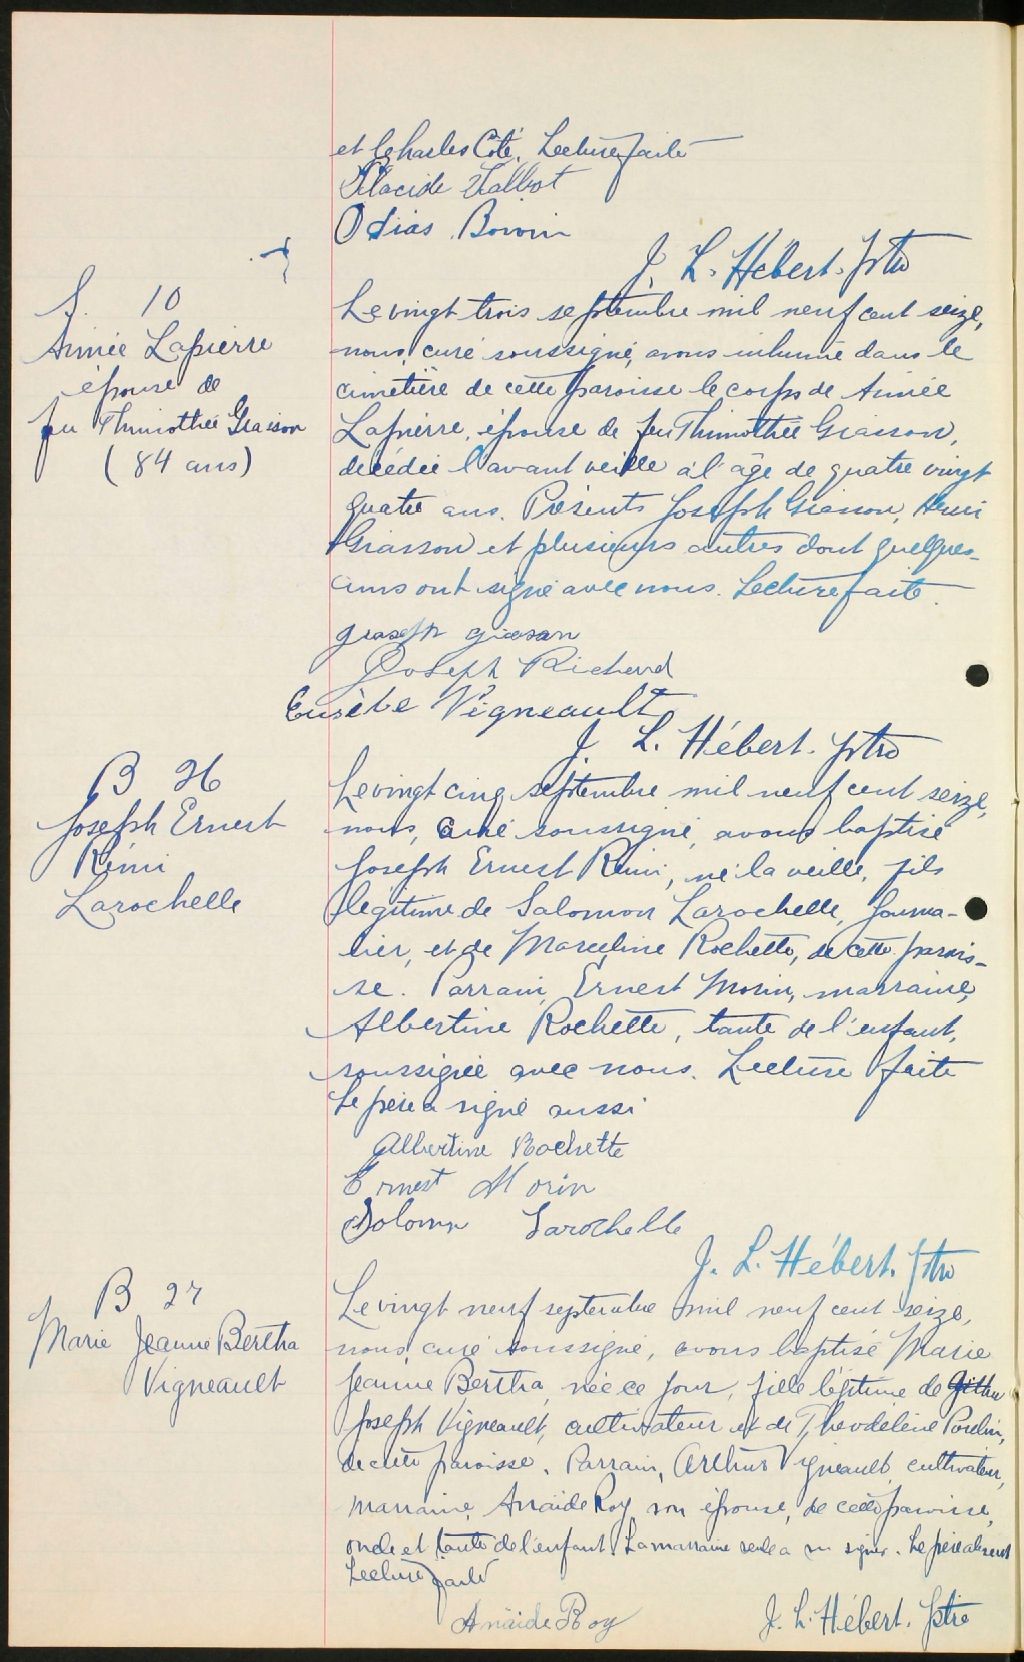 et Charles Côté. Lecture faite
Placide Talbot
Odias Boivin
J. L. Hébert. Ptre
S. 10
Aimée Lapierre
épouse de
feu Thimothée Giasson
(84 ans)
Le vingt trois septembre mil neuf cent seize,
nous, curé soussigné, avons inhumé dans le
cimetière de cette paroisse le corps de Aimée
Lapierre, épouse de feu Thimothée Giasson,
décédée l'avant veille à l'âge de quatre vingt
quatre ans. Présents Joseph Giasson, Henri
Giasson et plusieurs autres dont quelques-
uns ont signé avec nous. Lecture faite.
Joseph giasson
Joseph Richard
Eusèbe Vigneault
J. L. Hébert. Ptre
B 26
Joseph Ernest
Rémi
Larochelle
Le vingt cinq septembre mil neuf cent seize,
nous, curé soussigné, avons baptisé
Joseph Ernest Rémi, né la veille, fils
légitime de Salomon Larochelle, journa-
lier, et de Marceline Rochette, de cette parois-
se. Parrain, Ernest Morin, marraine,
Albertine Rochette, tante de l'enfant,
soussignée avec nous. Lecture faite
Le père a signé aussi
Albertine Rochette
Ernest Morin
Solomn Larochelle
J. L. Hébert. Ptre
B 27
Marie Jeanne Bertha
Vigneault
Le vingt neuf septembre mil neuf cent seize,
nous, curé soussigné, avons baptisé Marie
Jeanne Bertha, née ce jour, fille légitime de
Joseph Vigneault, cultivateur et de Théodéline Poulin,
de cette paroisse. Parrain, Arthur Vigneault, cultivateur,
marraine, Anaïde Roy, son épouse, de cette paroisse,
oncle et tante de l'enfant. La marraine seule a su signer. Le père absent
Lecture faite
Anaïde Roy
J. L. Hébert. Ptre